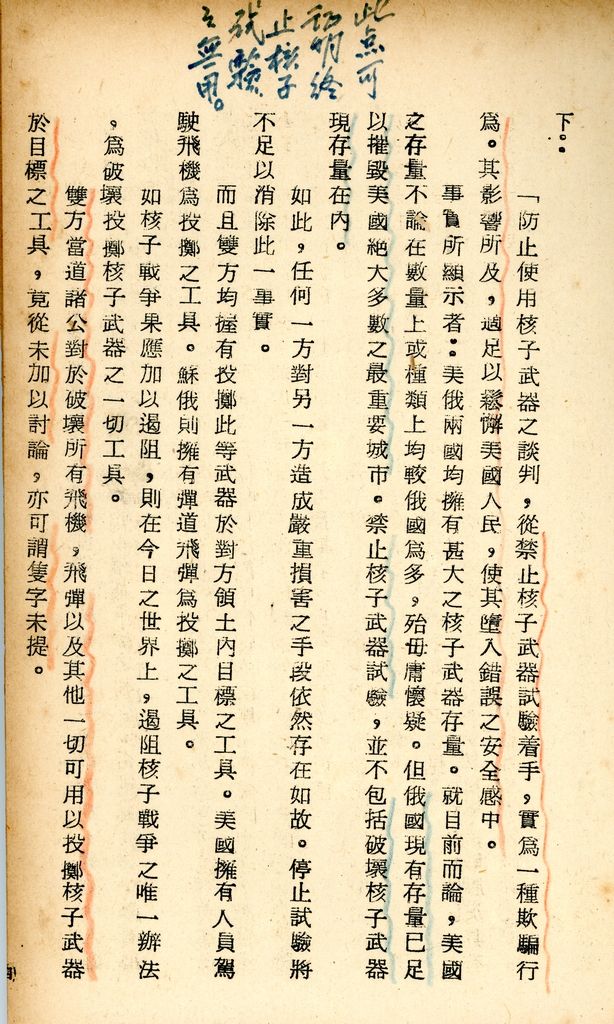 此点可
証明終
止核子
試驗
之無用。
下：
「防止使用核子武器之談判，從禁止核子武器試驗着手，實爲一種欺騙行
爲。其影響所及，適足以鬆懈美國人民，使其墮入錯誤之安全感中。
事實所顯示者：美俄兩國均擁有甚大之核子武器存量。就目前而論，美國
之存量不論在數量上或種類上均較俄國爲多，殆毋庸懷疑。但俄國現有存量已足
以摧毀美國絕大多數之最重要城市。禁止核子武器試驗，並不包括破壞核子武器
現存量在內。
如此，任何一方對另一方造成嚴重損害之手段依然存在如故。停止試驗將
不足以消除此一事實。
而且雙方均握有投擲此等武器於對方領土內目標之工具。美國擁有人員駕
駛飛機爲投擲之工具。蘇俄則擁有彈道飛彈爲投擲之工具。
如核子戰爭果應加以遏阻，則在今日之世界上，遏阻核子戰爭之唯一辦法
，爲破壞投擲核子武器之一切工具。
雙方當道諸公對於破壞所有飛機，飛彈以及其他一切可用以投擲核子武器
於目標之工具，竟從未加以討論，亦可謂隻字未提。